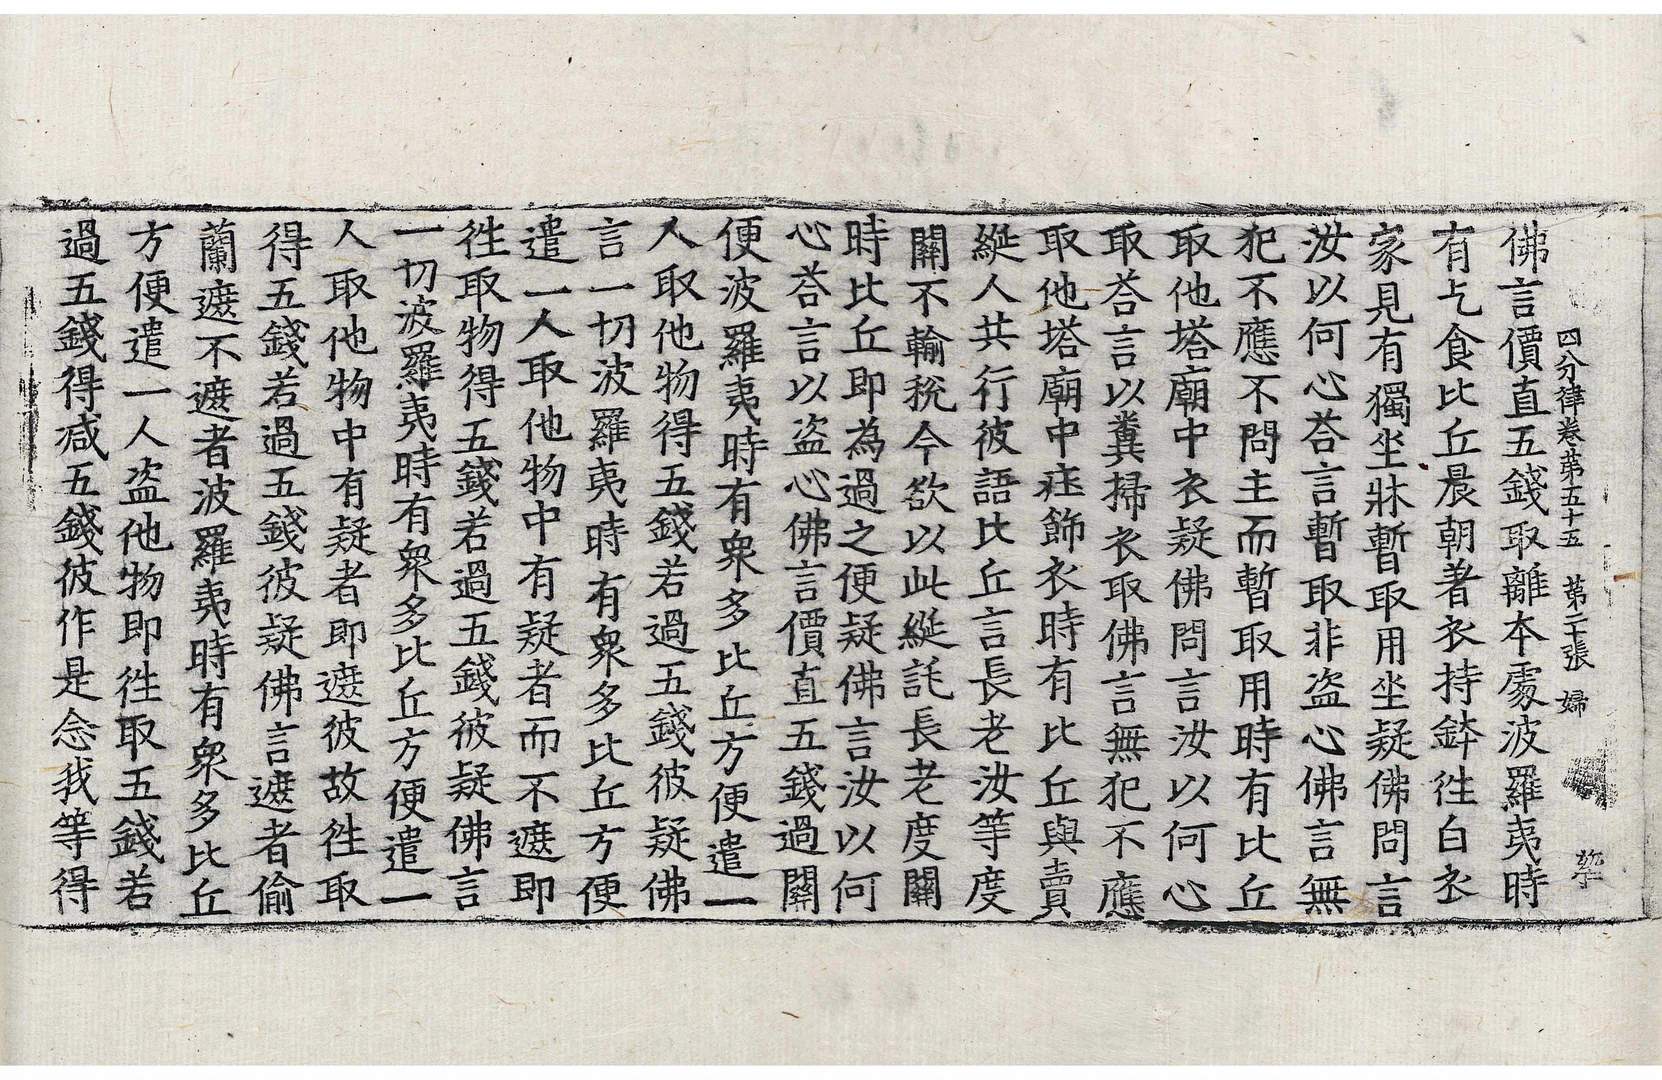 四分律卷第五十五 第二十張 婦
佛言價直五錢取離本處波羅夷時
有乞食比丘晨朝著衣持鉢徃白衣
家見有獨坐牀暫取用坐疑佛問言
汝以何心荅言暫取非盜心佛言無
犯不應不問主而暫取用時有比丘
取他塔廟中衣疑佛問言汝以何心
取荅言以糞掃衣取佛言無犯不應
取他塔廟中庄飾衣時有比丘與賣
綖人共行彼語比丘言長老汝等度
關不輸稅今欲以此綖託長老度關
時比丘即為過之便疑佛言汝以何
心荅言以盜心佛言價直五錢過關
便波羅夷時有衆多比丘方便遣一
人取他物得五錢若過五錢彼疑佛
言一切波羅夷時有衆多比丘方便
遣一人取他物中有疑者而不遮即
徃取物得五錢若過五錢彼疑佛言
一切波羅夷時有衆多比丘方便遣一
人取他物中有疑者即遮彼故徃取
得五錢若過五錢彼疑佛言遮者偷
蘭遮不遮者波羅夷時有衆多比丘
方便遣一人盜他物即徃取五錢若
過五錢得減五錢彼作是念我等得